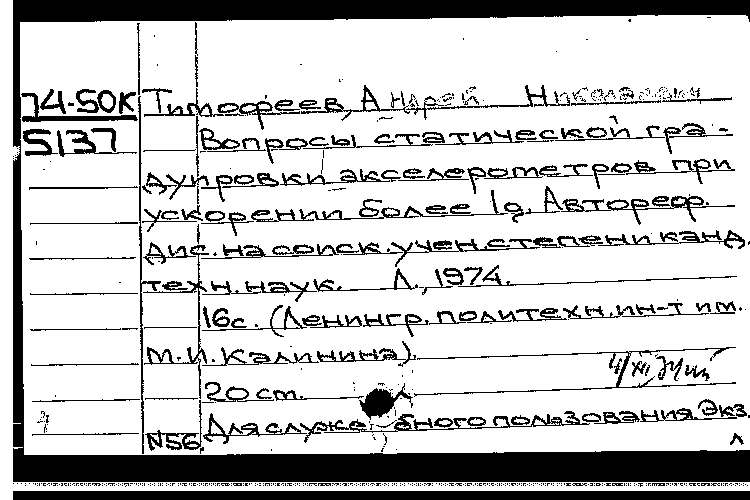 74-50К Тимофеев, Андрей Николаевич
5137 Вопросы статической гра-
дуировки акселерометров при
ускорении более 1g. Автореф.
дис. на соиск. учен. степени канд.
техн. наук. Л., 1974.
16с. (Ленингр. политехн. ин-т им.
М.И. Калинина).
4/XII
20 ст.
Для служебного пользования. Экз.
N56.